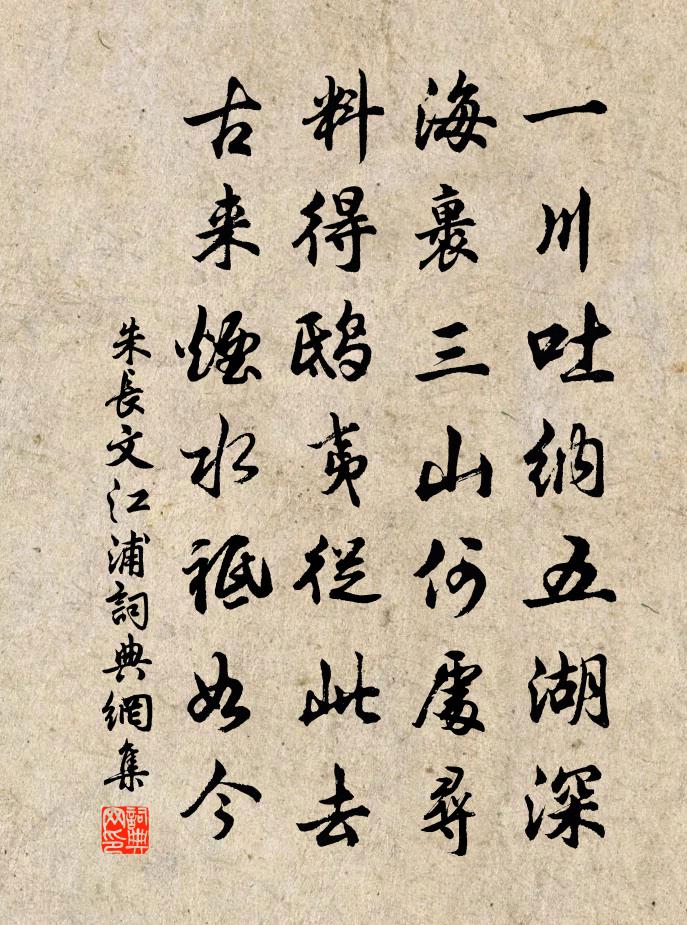 一川吐納五湖深
海裏三山何處尋
料得鴟夷從此去
古来煙水祗如今
朱長文江浦詞典網集
詞典网印